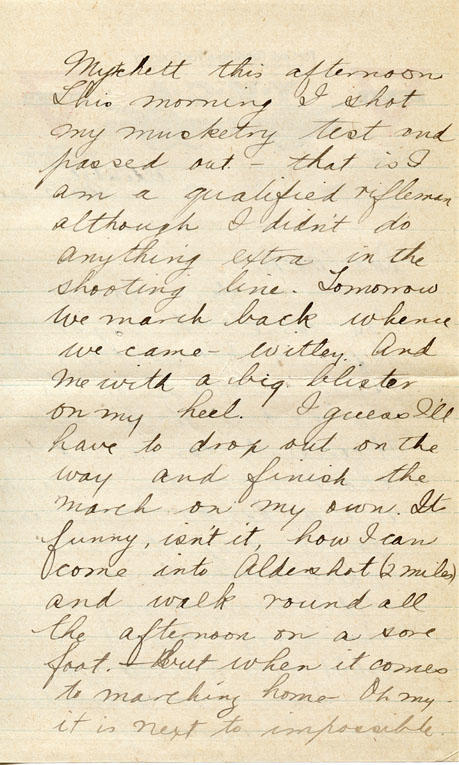 Mytchett this afternoon
This morning I shot
my musketry test and
passed out - that is I
am a qualified rifleman
although I didn't do
anything extra in the
shooting line. Tomorrow
we march back whence
we came - Witley. And
me with a big blister
on my heel. I guess I'll
have to drop out on the
way and finish the
march on my own. It
funny, isn't it, how I can
come into Aldershot (2 miles)
and walk round all
the afternoon on a sore
foot. - But when it comes
to marching home - Oh my -
it is next to impossible.